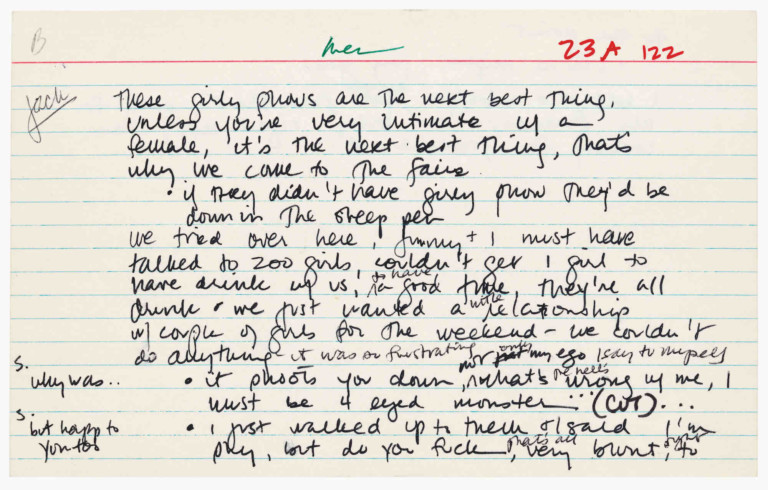 B
men
23A 122
Jack
These girly shows are the next best thing,
unless you're very intimate w/ a
female, it's the next best thing, that's
why we come to the fairs
• if they didn't have girly show they'd be
down in the sheep pen
we tried over here, Jimmy + I must have
talked to 200 girls, couldn't get 1 girl to
have drink w/ us, to have a good time, they're all
drunk • we just wanted a little relationship
w/ couple of girls for the weekend - we couldn't
do anything it was so frustrating not only my ego I say to myself
S.
why was..
• it shoots you down, what's the hells wrong w/ me, I
must be 4 eyed monster... (CUT)...
S.
but happ to
you too
• I just walked up to them & said I'm
shy, but do you fuck, that's all, very blunt, right to